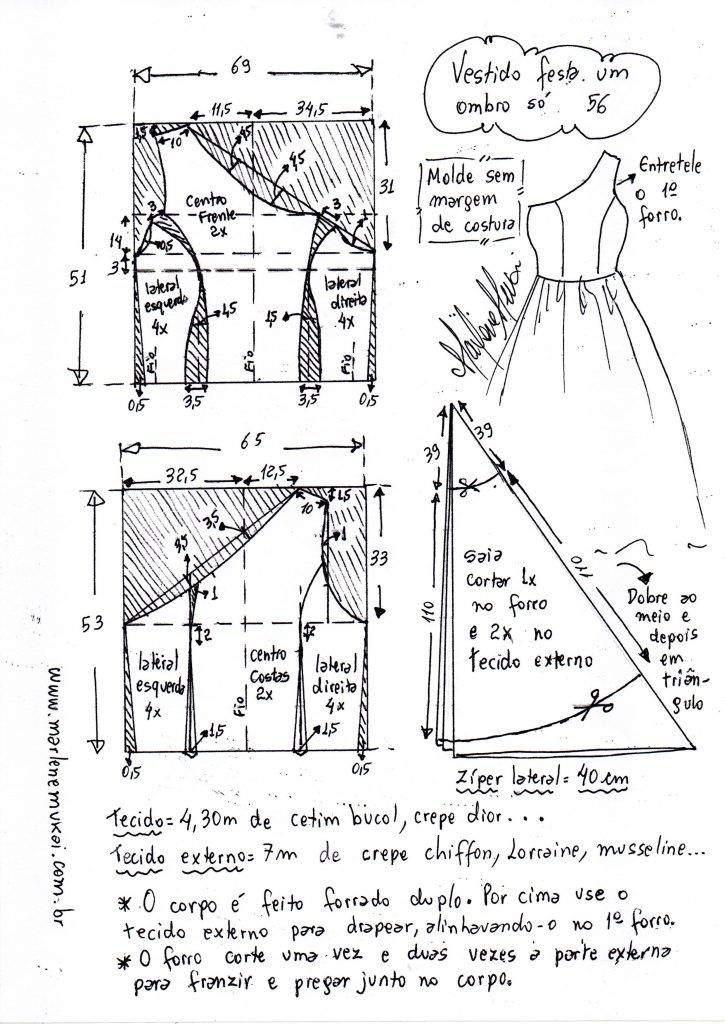 Vestido festa um
ombro só 56
Molde sem
margem
de costura
Entretele
o 1º
forro.
69
11,5
34,5
1,5
10
4,5
4,5
31
51
14
3
3
0,5
Centro
Frente
2x
3
1
lateral
esquerda
4x
1,5
1,5
lateral
direita
4x
Fio
Fio
Fio
0,5
3,5
3,5
0,5
65
32,5
12,5
3,5
1,5
10
1
33
53
1
2
2
lateral
esquerda
4x
Centro
Costas
2x
lateral
direita
4x
Fio
1,5
1,5
0,5
0,5
39
39
110
110
saia
cortar 1x
no forro
e 2x no
tecido externo
Dobre ao
meio e
depois
em
triân-
gulo
Zíper lateral= 40 cm
Tecido= 4,30m de cetim bucol, crepe dior...
Tecido externo= 7m de crepe chiffon, Lorraine, musseline...
* O corpo é feito forrado duplo. Por cima use o
tecido externo para drapear, alinhavando-o no 1º forro.
* O forro corte uma vez e duas vezes a parte externa
para franzir e pregar junto no corpo.
www.marlenemukai.com.br